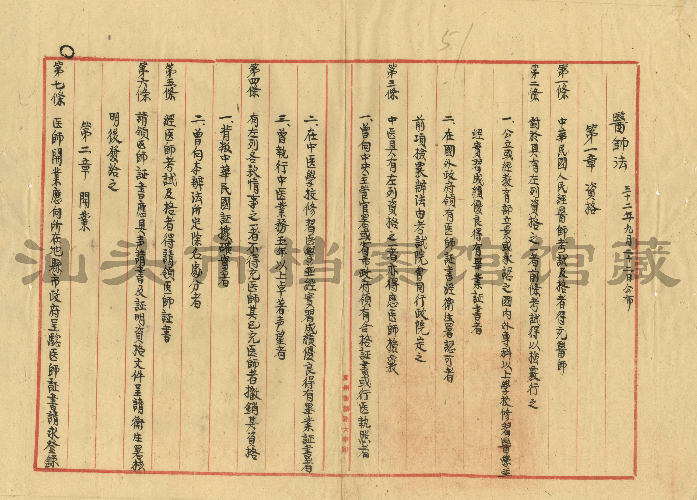 醫師法
三十二年九月二十二日公布
第一章 資格
第一條 中華民國人民經醫師考試及格者得充醫師
第二條 對於具有左列資格之一者前條考試得以檢覈行之
一、公立或經教育部立案或承認之國內外專科以上學校修習醫學並
經實習成績優良得有畢業証書者
二、在國外政府領有医師証書經衛生署認可者
前項檢覈辦法由考試院會同行政院定之
第三條 中医具有左列資格之一者亦得應医師檢覈
一、曾向中央主管官署或省市政府領有合格証書或行医執照者
二、在中医學校修習医學並經實習成績優良得有畢業証書者
三、曾執行中医業務五年以上卓著声望者
第四條 有左列各款情事之一者不得充医師其已充医師者撤銷其資格
一、背叛中華民國証據確實者
二、曾向本辦法所定除名處分者
第五條 經医師考試及格者得請領医師証書
第六條 請領医師証書應具声請書及証明資格文件呈請衛生署核
明後發給之
第二章 開業
第七條 医師開業應向所在地縣市政府呈驗医師証書請求登錄
51
汕头市档案馆馆藏